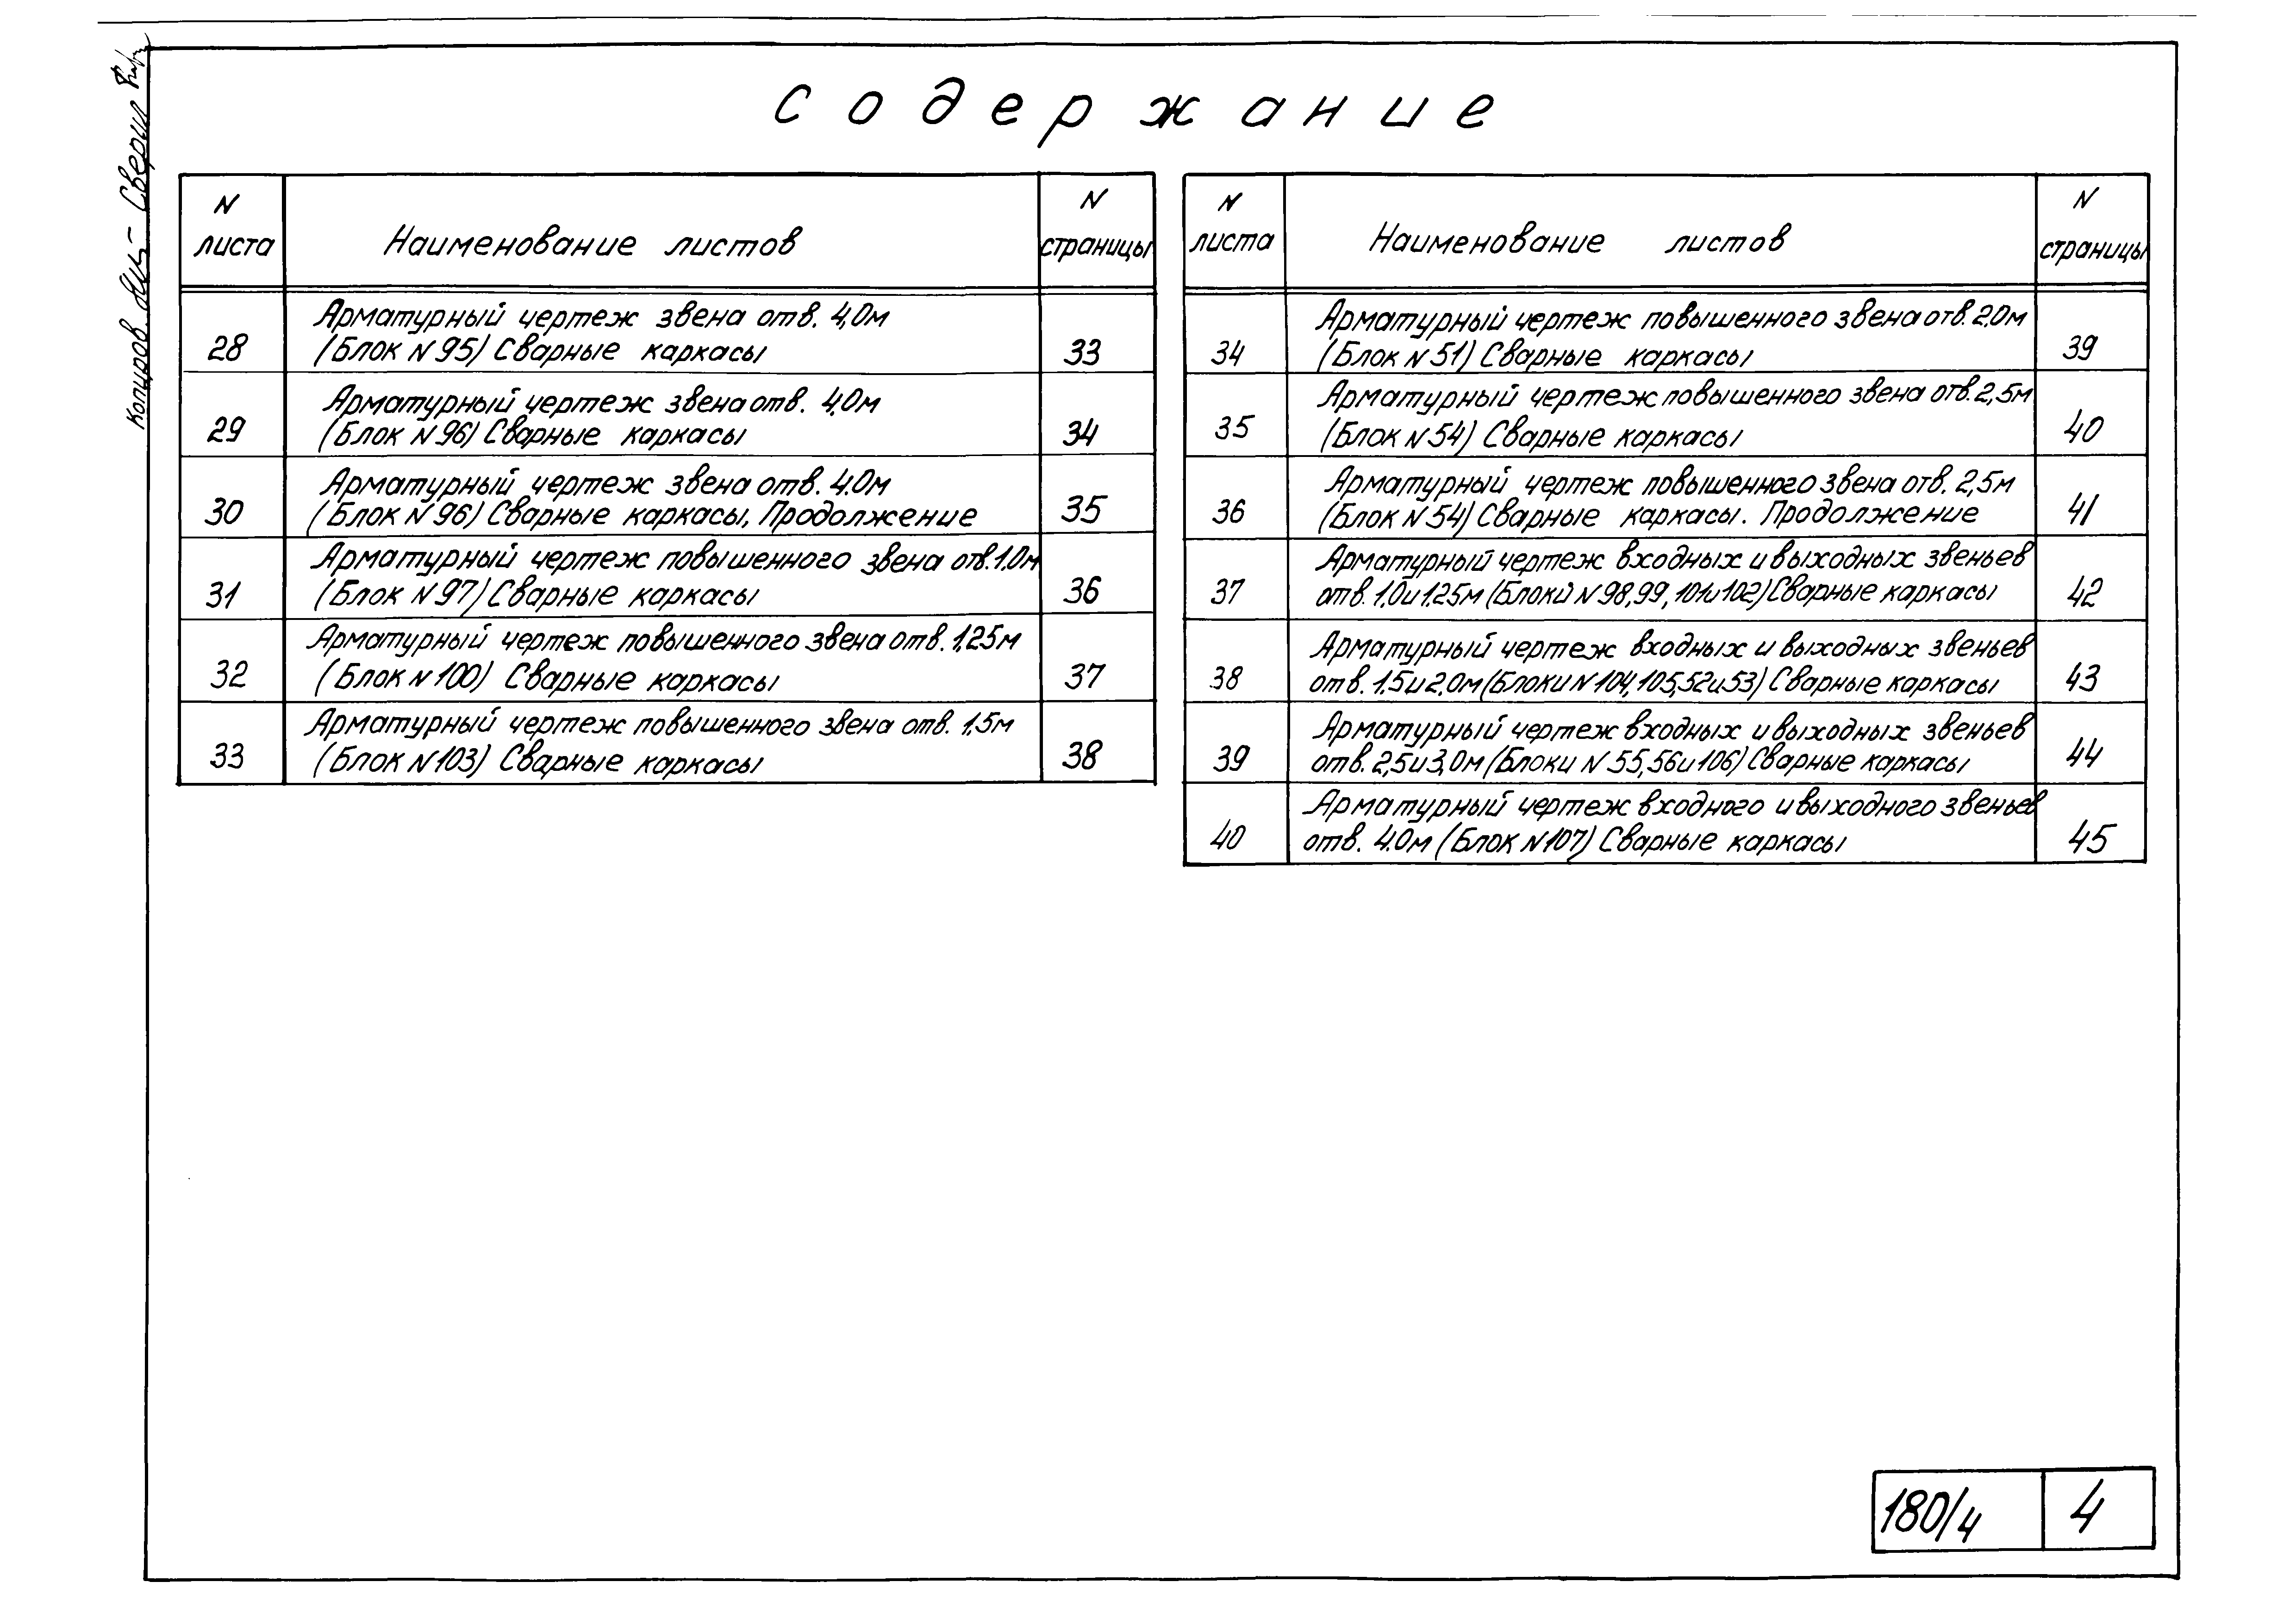 Содержание
N листа
Наименование листов
N страницы
28
Арматурный чертеж звена отв. 4,0м
(Блок N 95) Сварные каркасы
33
29
Арматурный чертеж звена отв. 4.0м
(Блок N 96) Сварные каркасы
34
30
Арматурный чертеж звена отв. 4.0м
(Блок N 96) Сварные каркасы, Продолжение
35
31
Арматурный чертеж повышенного звена отв. 1.0м
(Блок N 97) Сварные каркасы
36
32
Арматурный чертеж повышенного звена отв. 1,25м
(Блок N 100) Сварные каркасы
37
33
Арматурный чертеж повышенного звена отв. 1,5м
(Блок N 103) Сварные каркасы
38
N листа
Наименование листов
N страницы
34
Арматурный чертеж повышенного звена отв. 2.0м
(Блок N 51) Сварные каркасы
39
35
Арматурный чертеж повышенного звена отв. 2,5м
(Блок N 54) Сварные каркасы
40
36
Арматурный чертеж повышенного звена отв. 2,5м
(Блок N 54) Сварные каркасы. Продолжение
41
37
Арматурный чертеж входных и выходных звеньев
отв. 1,0 и 1.25м (Блоки N 98, 99, 101 и 102) Сварные каркасы
42
38
Арматурный чертеж входных и выходных звеньев
отв. 1,5 и 2.0м (Блоки N 104, 105, 52 и 53) Сварные каркасы
43
39
Арматурный чертеж входных и выходных звеньев
отв. 2,5 и 3,0м (Блоки N 55, 56 и 106) Сварные каркасы
44
40
Арматурный чертеж входного и выходного звеньев
отв. 4.0м (Блок N 107) Сварные каркасы
45
Копиров. Сверил
180/4
4